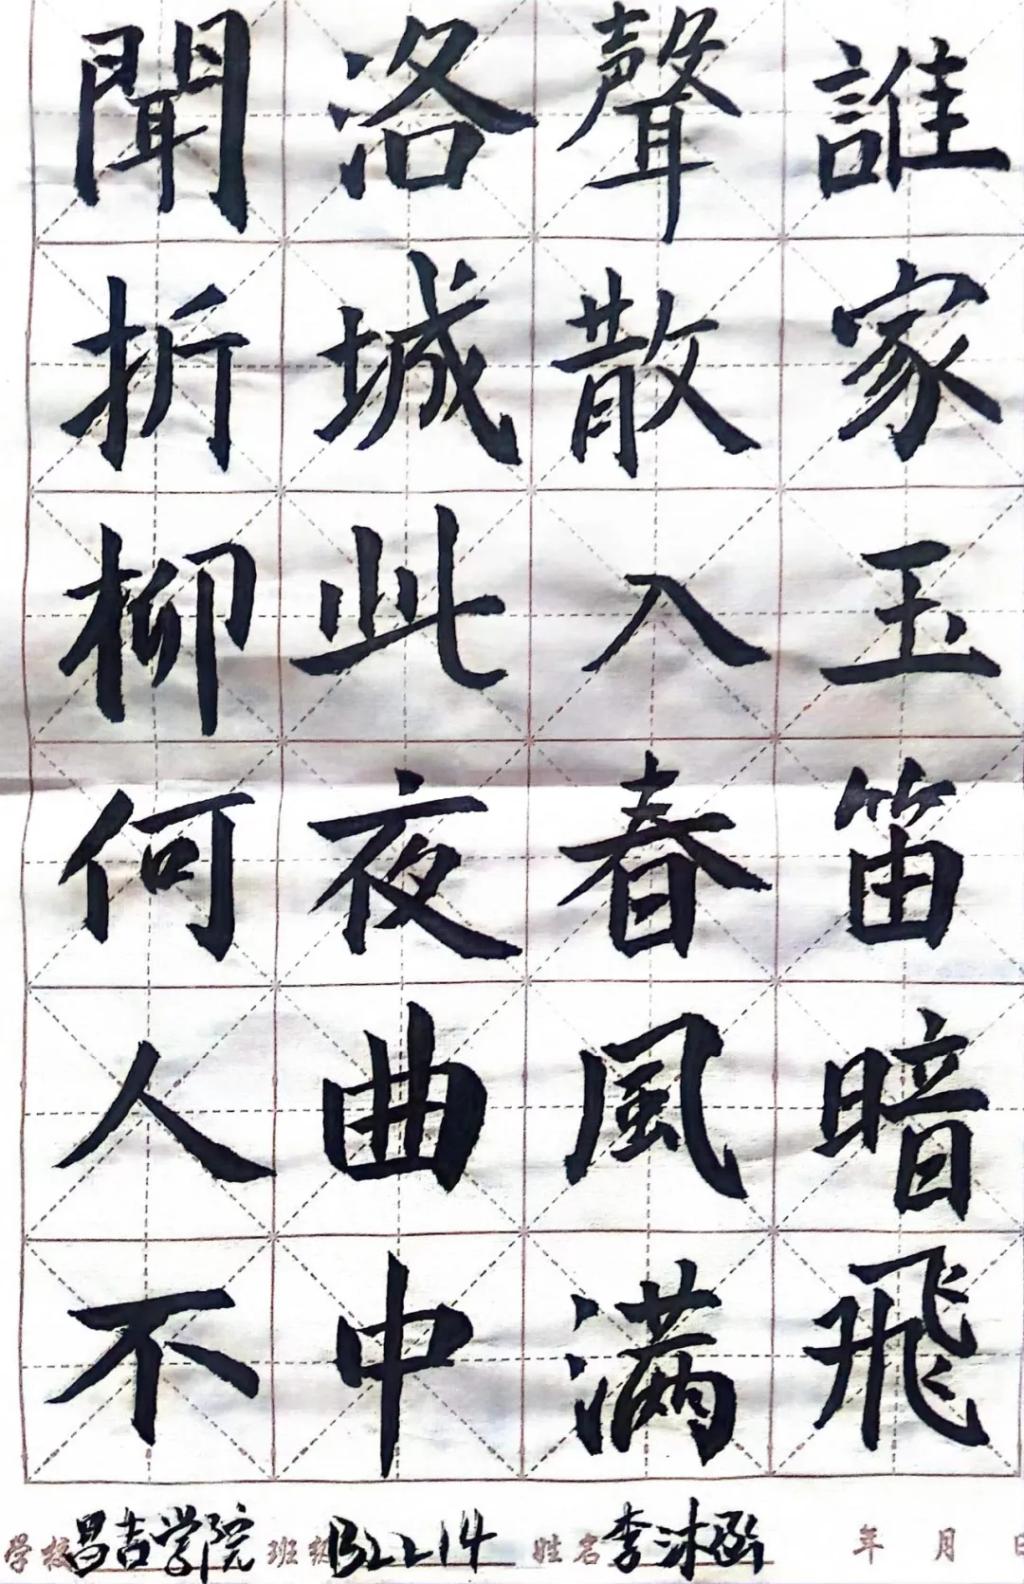 誰家玉笛暗飛
聲散入春風满
洛城此夜曲中
聞折柳何人不
学校昌吉学院 班级B2214 姓名李沐函 年 月 日